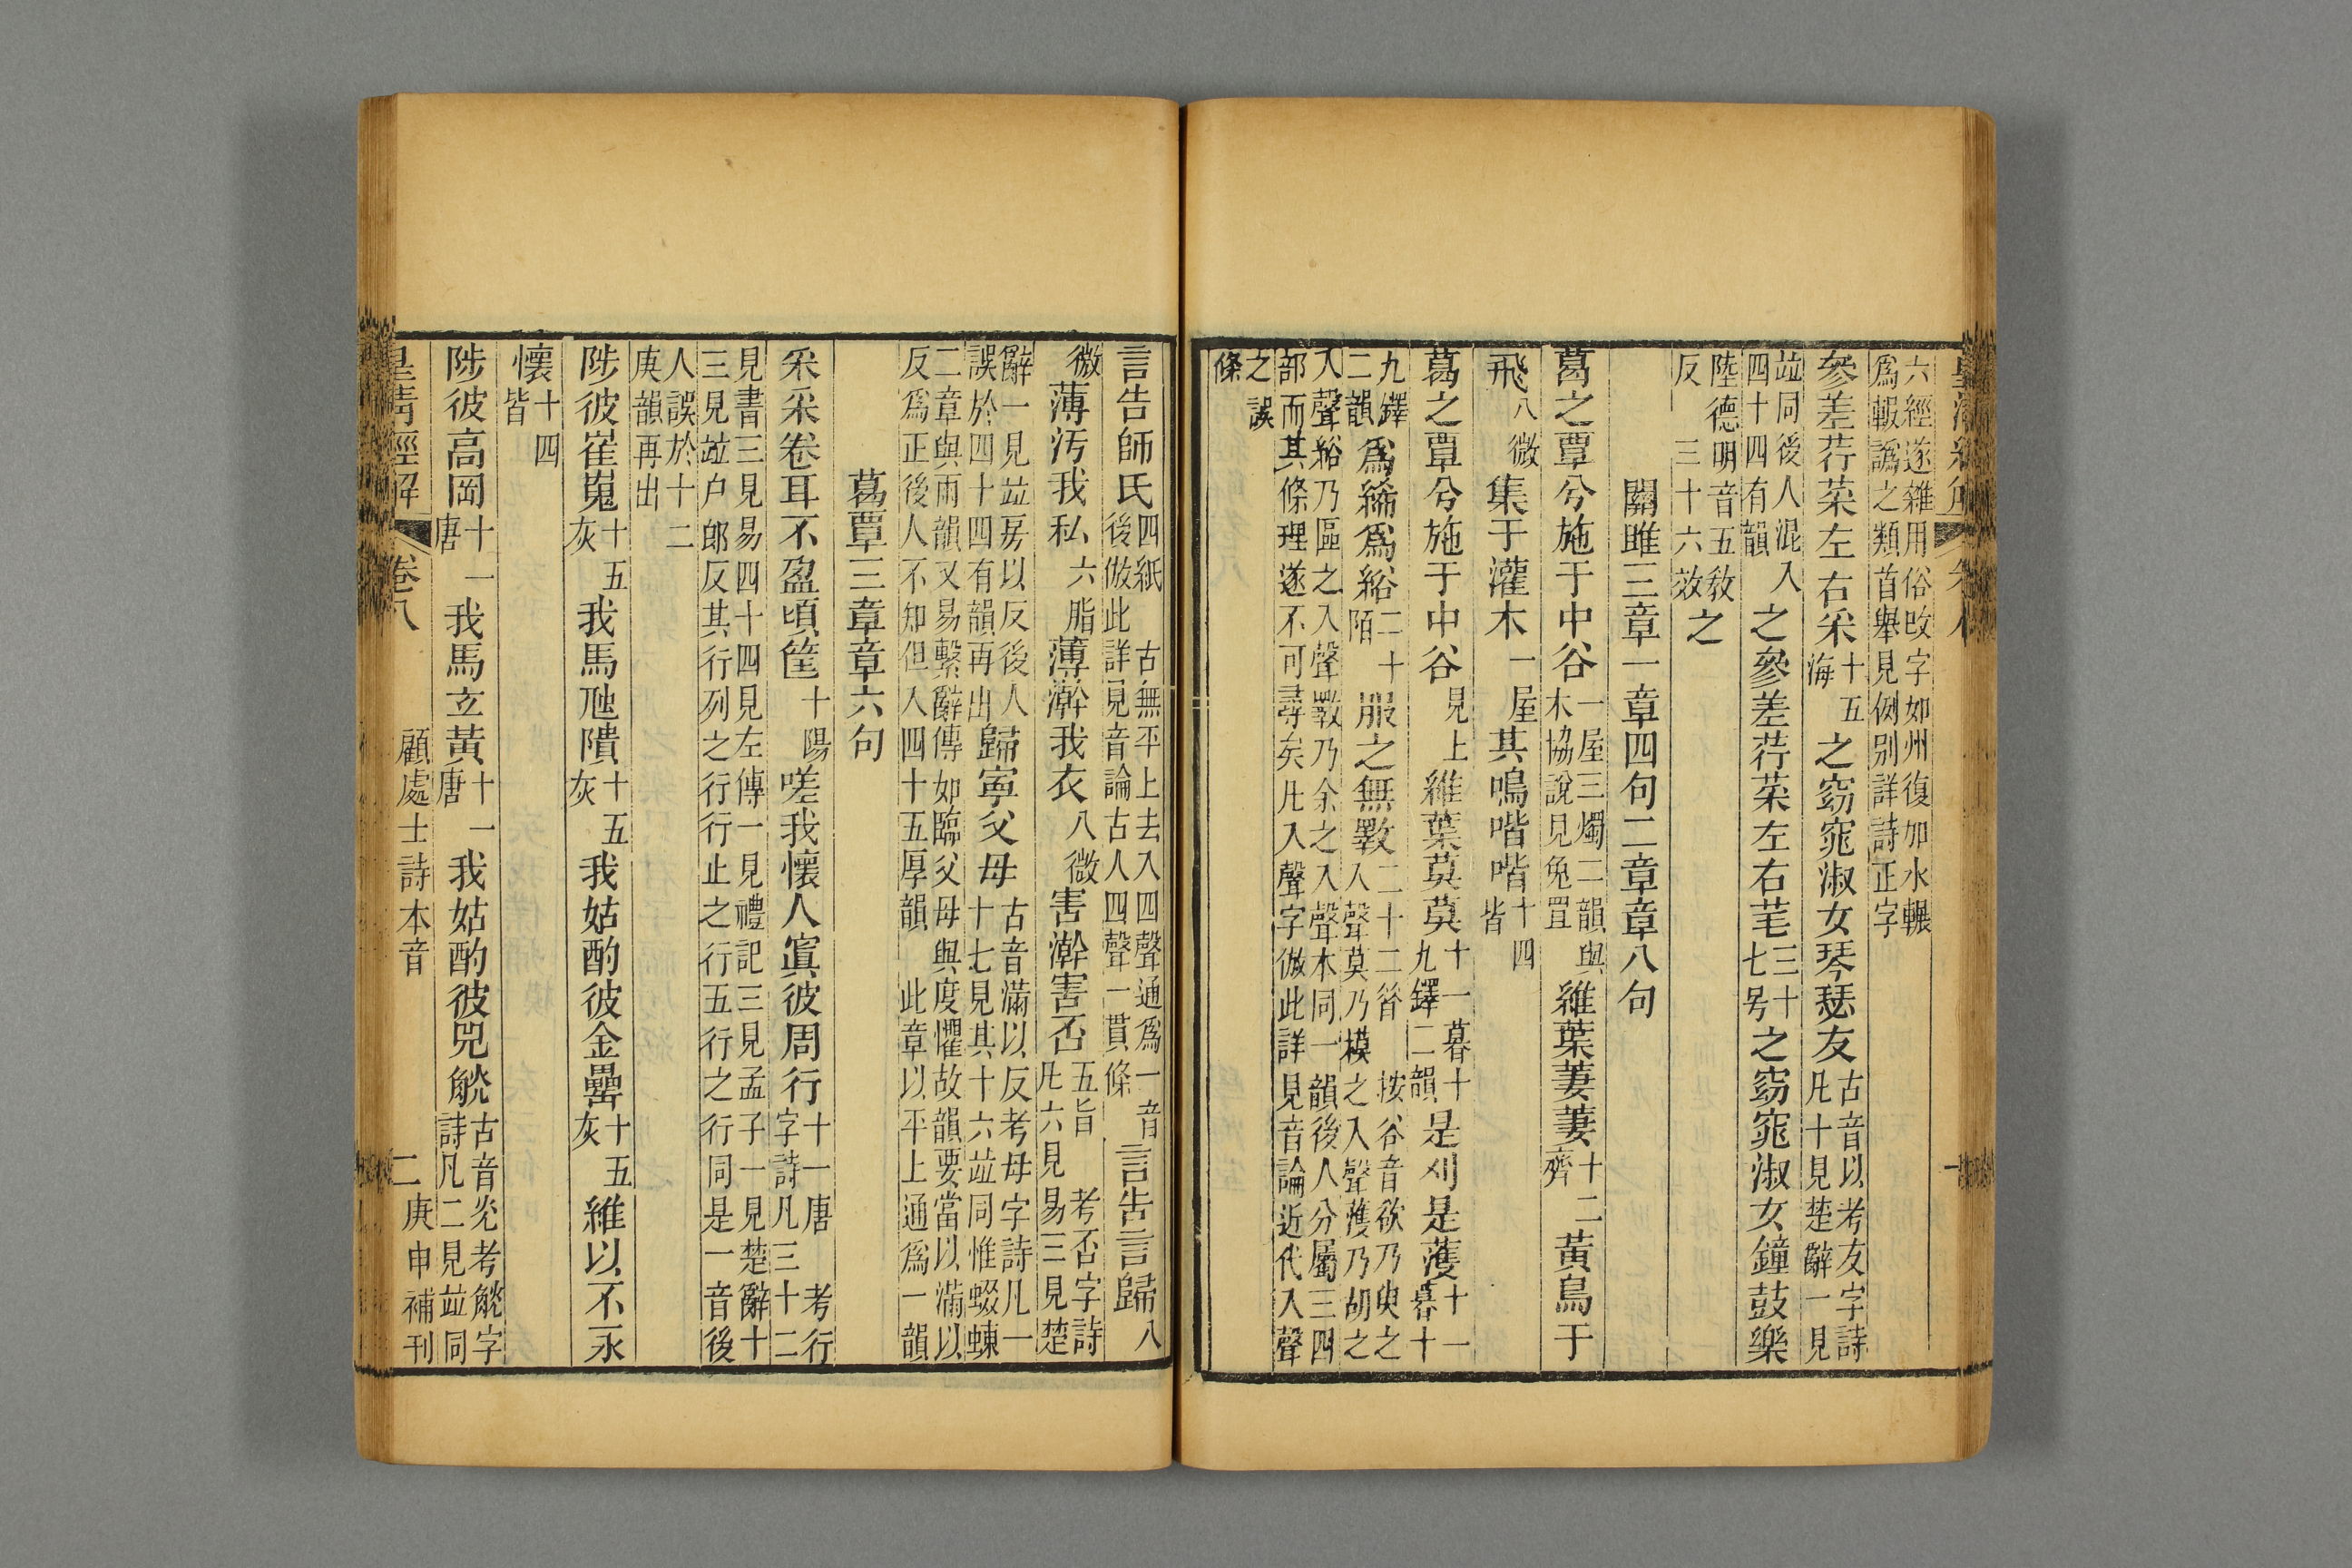 六經遂雜用俗改字如州復加水輾
爲輾譌之類首舉見例別詳詩正字
參差荇菜左右采十五海之窈窕淑女琴瑟友古音以考友字詩凡十見楚辭一見
竝同後人混入四十四有韻之參差荇菜左右芼三十七号之窈窕淑女鐘鼓樂
陸德明音五敎反三十六效之
關雎三章一章四句二章章八句
葛之覃兮施于中谷一屋三燭二韻與木協說見兔罝維葉萋萋十二齊黃鳥于
飛八微集于灌木一屋其鳴喈喈十四皆
葛之覃兮施于中谷見上維葉莫莫十一暮十九鐸二韻是刈是濩十一暮十
九鐸二韻爲絺爲綌二十陌服之無斁二十二昔按谷音欲乃臾之入聲莫乃模之入聲濩乃胡之
入聲綌乃區之入聲斁乃余之入聲本同一韻後人分屬三四部而其條理遂不可尋矣凡入聲字倣此詳見音論近代入聲
之誤條
言告師氏四紙後倣此古無平上去入四聲通爲一音詳見音論古人四聲一貫條言告言歸八
微薄汚我私六脂薄澣我衣八微害澣害否五旨考否字詩凡六見易三見楚
辭一見竝房以反後人誤於四十四有韻再出歸寧父母古音滿以反考母字詩凡一十七見其十六竝同惟蝃蝀
二章與雨韻又易繫辭傳如臨父母與度懼故韻要當以滿以反爲正後人不知但入四十五厚韻此章以平上通爲一韻
葛覃三章章六句
采采卷耳不盈頃筐十陽嗟我懷人寘彼周行十一唐考行字詩凡三十二
見書三見易四十四見左傳一見禮記三見孟子一見楚辭十三見竝户郎反其行列之行行止之行五行之行同是一音後
人誤於十二庚韻再出
陟彼崔嵬十五灰我馬虺隤十五灰我姑酌彼金罍十五灰維以不永
懷十四皆
陟彼高岡十一唐我馬玄黃十一唐我姑酌彼兕觥古音光考觥字詩凡二見竝同
皇清經解 卷八 顧處士詩本音 二 庚申補刊